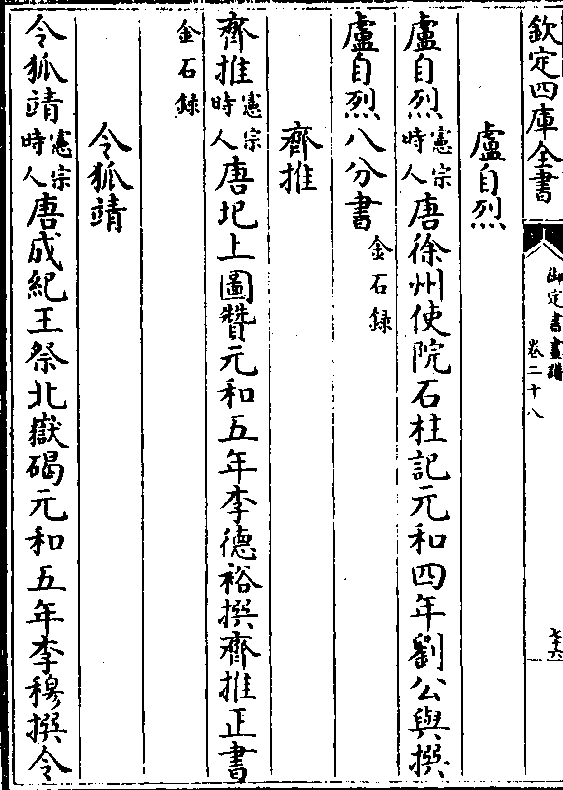 欽定四庫全書
御定書畫譜
卷二十八
七十六
盧自烈
盧自烈憲宗時人唐徐州使院石柱記元和四年劉公與撰
盧自烈八分書金石録
齊推
齊推憲宗時人唐圯上圖贊元和五年李德裕撰齊推正書
金石録
令狐靖
令狐靖憲宗時人唐成紀王祭北嶽碣元和五年李穆撰令